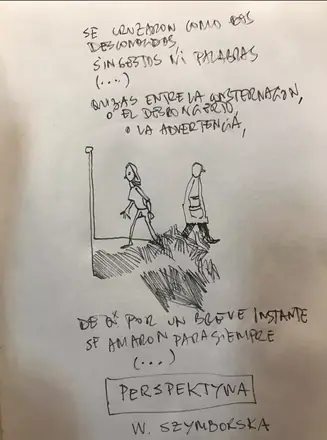 SE CRUZARON COMO DOS
DESCONOCIDOS,
SIN GESTOS NI PALABRAS
(....)
QUIZÁS ENTRE LA CONSTERNACIÓN,
O EL DESCONCIERTO,
O LA ADVERTENCIA,
DE Q* POR UN BREVE INSTANTE
SE AMARON PARA SIEMPRE
(...)
PERSPEKTYWA
W. SZYMBORSKA